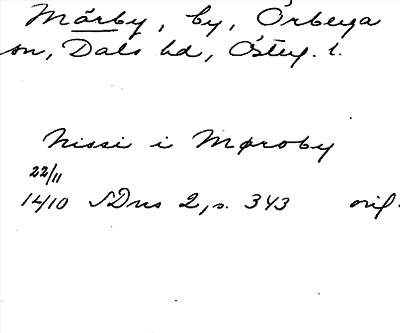 Mörby, by, Örberga
sn, Dals hd, Östeg. l.
Nissi i Møroby
22/11
1410 SDns 2, s. 343 orig.